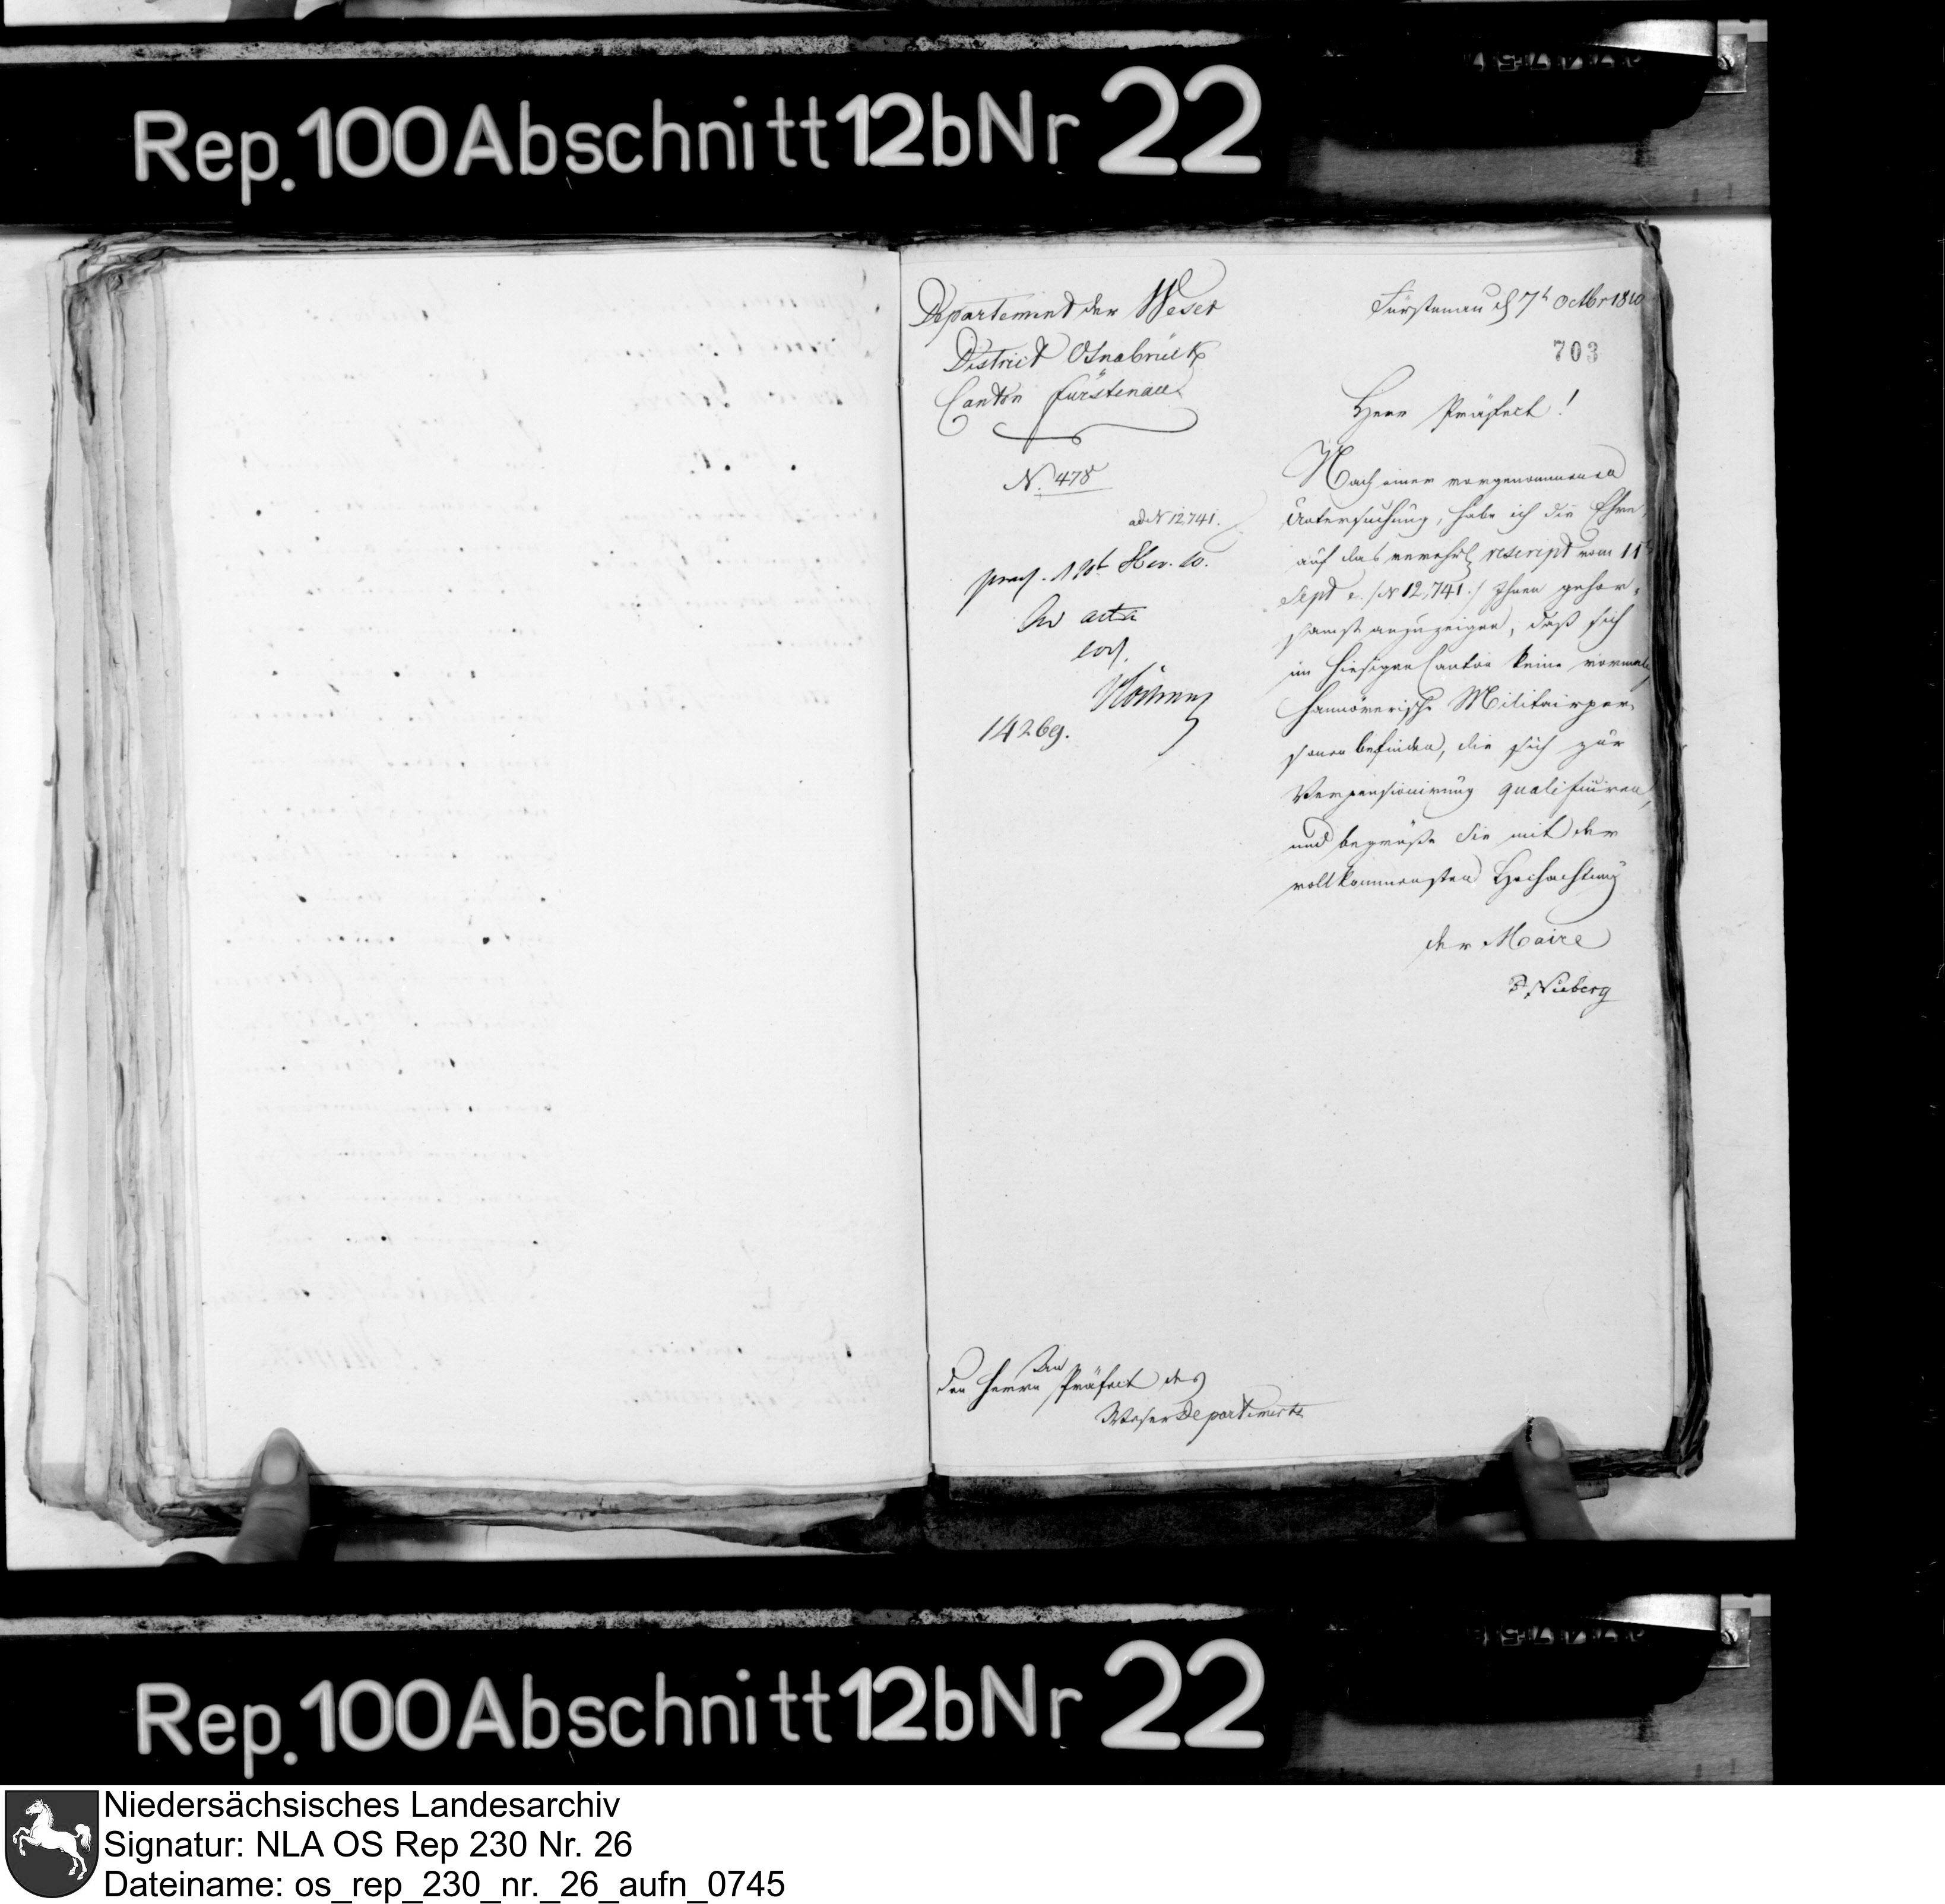 Rep. 100 Abschnitt 12b Nr 22
Departement der Weser
District Osnabrück
Canton Fürstenau
N. 478
ad N 12741.
praes. 8br. 10.
Ad acta
14269.
Fürstenau d 7t Octbr 1810
703
Herr Präfect!
Nach einer vorgenommenen
Untersuchung, habe ich die Ehre,
auf das verehrl rescript vom 11t
Sept c. /: N 12,741 :/ Ihnen gehor-
samst anzuzeigen, daß sich
im hiesigen Canton keine vormals
Hannöverische Militairper-
sonen befinden, die sich zur
Verpensionirung qualificiren,
und begrüße Sie mit der
vollkommensten Hochachtung
der Maire
Nieberg
An
den Herrn Präfect des
Weser Departements
Rep. 100 Abschnitt 12b Nr 22
Niedersächsisches Landesarchiv
Signatur: NLA OS Rep 230 Nr. 26
Dateiname: os_rep_230_nr._26_aufn_0745